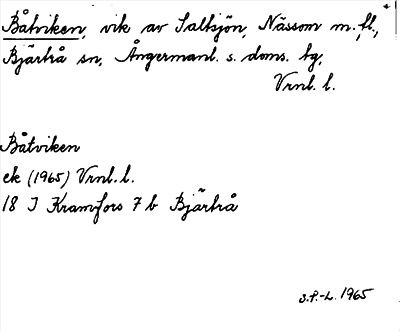 Båtviken, vik av Saltsjön, Nässom m.fl.,
Bjärtrå sn, Ångermanl. s. doms. tg,
Vrnl. l.
Båtviken
ek (1965) Vrnl. l.
18 I Kramfors 7 b Bjärtrå
S.P.-L. 1965